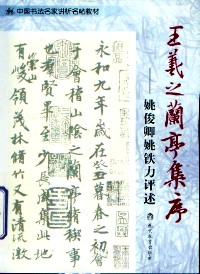 中国书法名家讲析名帖教材
王羲之蘭亭集序
——姚俊卿姚铁力评述
永和九年歲在癸丑暮春之初會
于會稽山陰之蘭亭脩稧事
也羣賢畢至少長咸集此地
崇山
有峻領茂林脩竹又有清流激